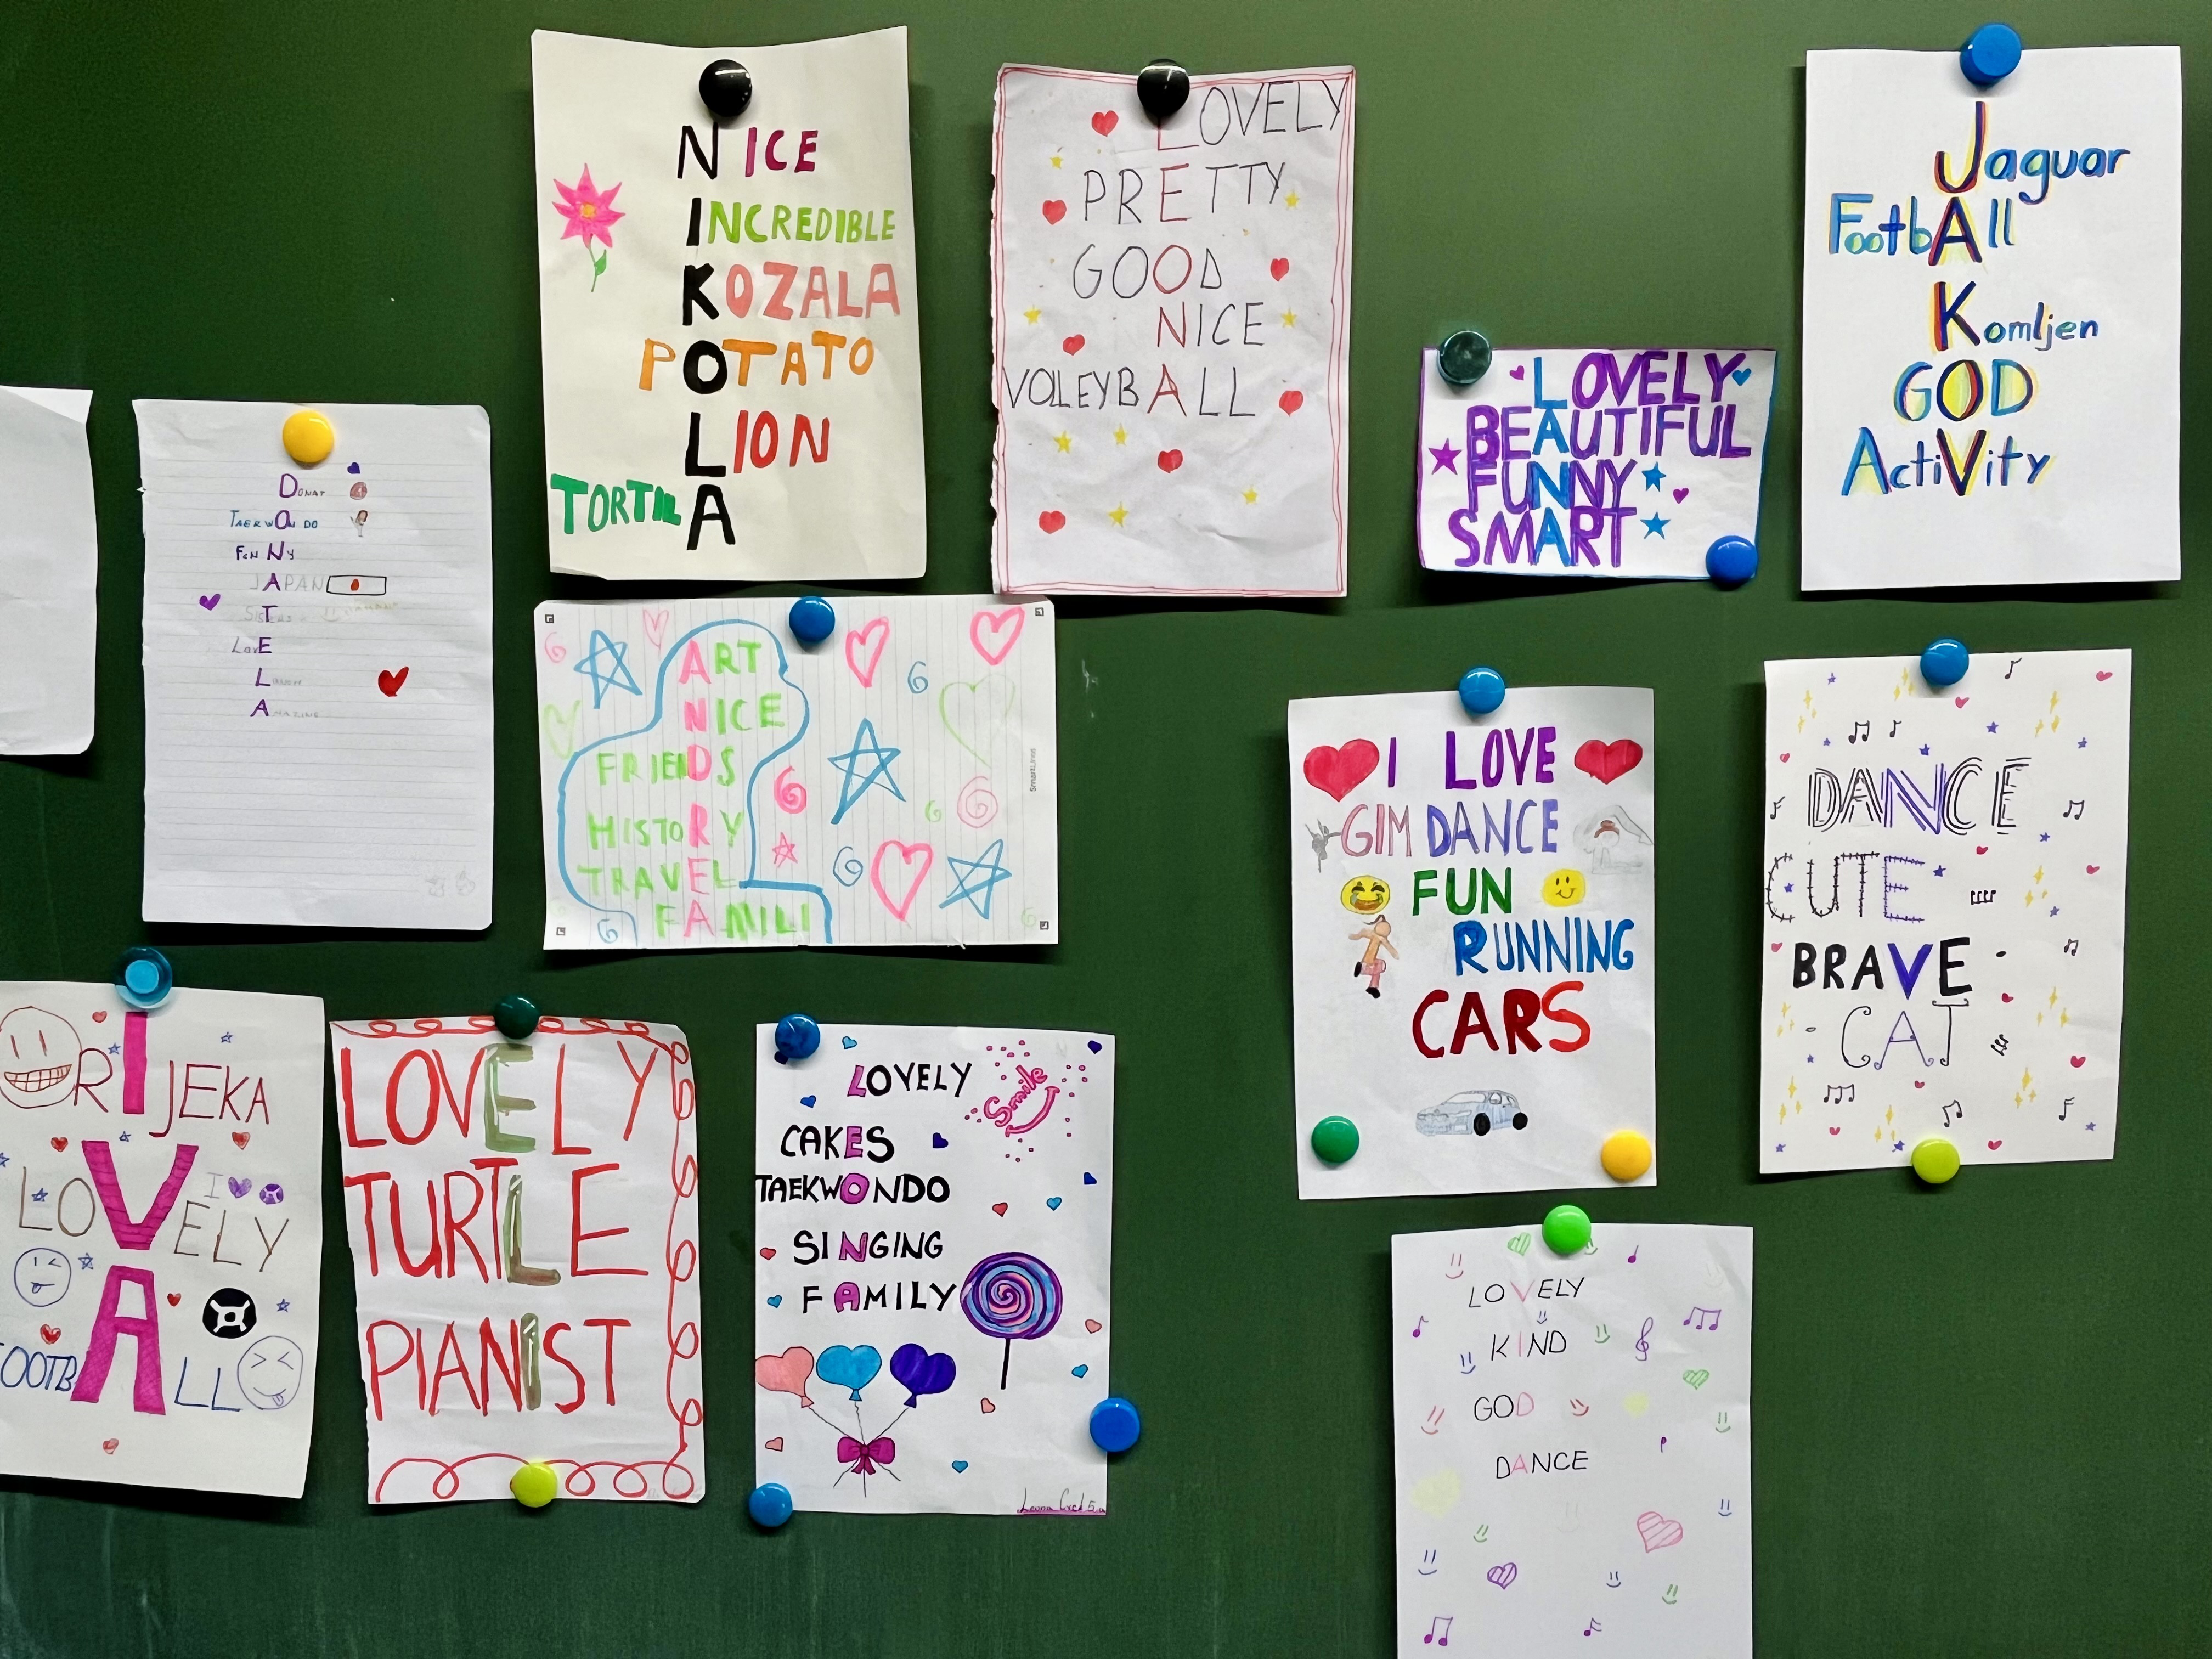 NICE
INCREDIBLE
KOZALA
POTATO
LION
TORTILA
LOVELY
PRETTY
GOOD
NICE
VOLLEYBALL
LOVELY
BEAUTIFUL
FUNNY
SMART
Jaguar
FootbAll
Komljen
GOD
ActiVity
DONAT
TAEKWONDO
FUNNY
JAPAN
SISTERS
LOVE
L
AMAZING
ART
NICE
FRIENDS
HISTORY
TRAVEL
FAMILI
SmartLines
I LOVE
GIM DANCE
FUN
RUNNING
CARS
DANCE
CUTE
BRAVE
CAT
RIJEKA
LOVELY
I
OOTBALL
LOVELY
TURTLE
PIANIST
LOVELY
Smile
CAKES
TAEKWONDO
SINGING
FAMILY
Leona Cvek 5.a
LOVELY
KIND
GOD
DANCE